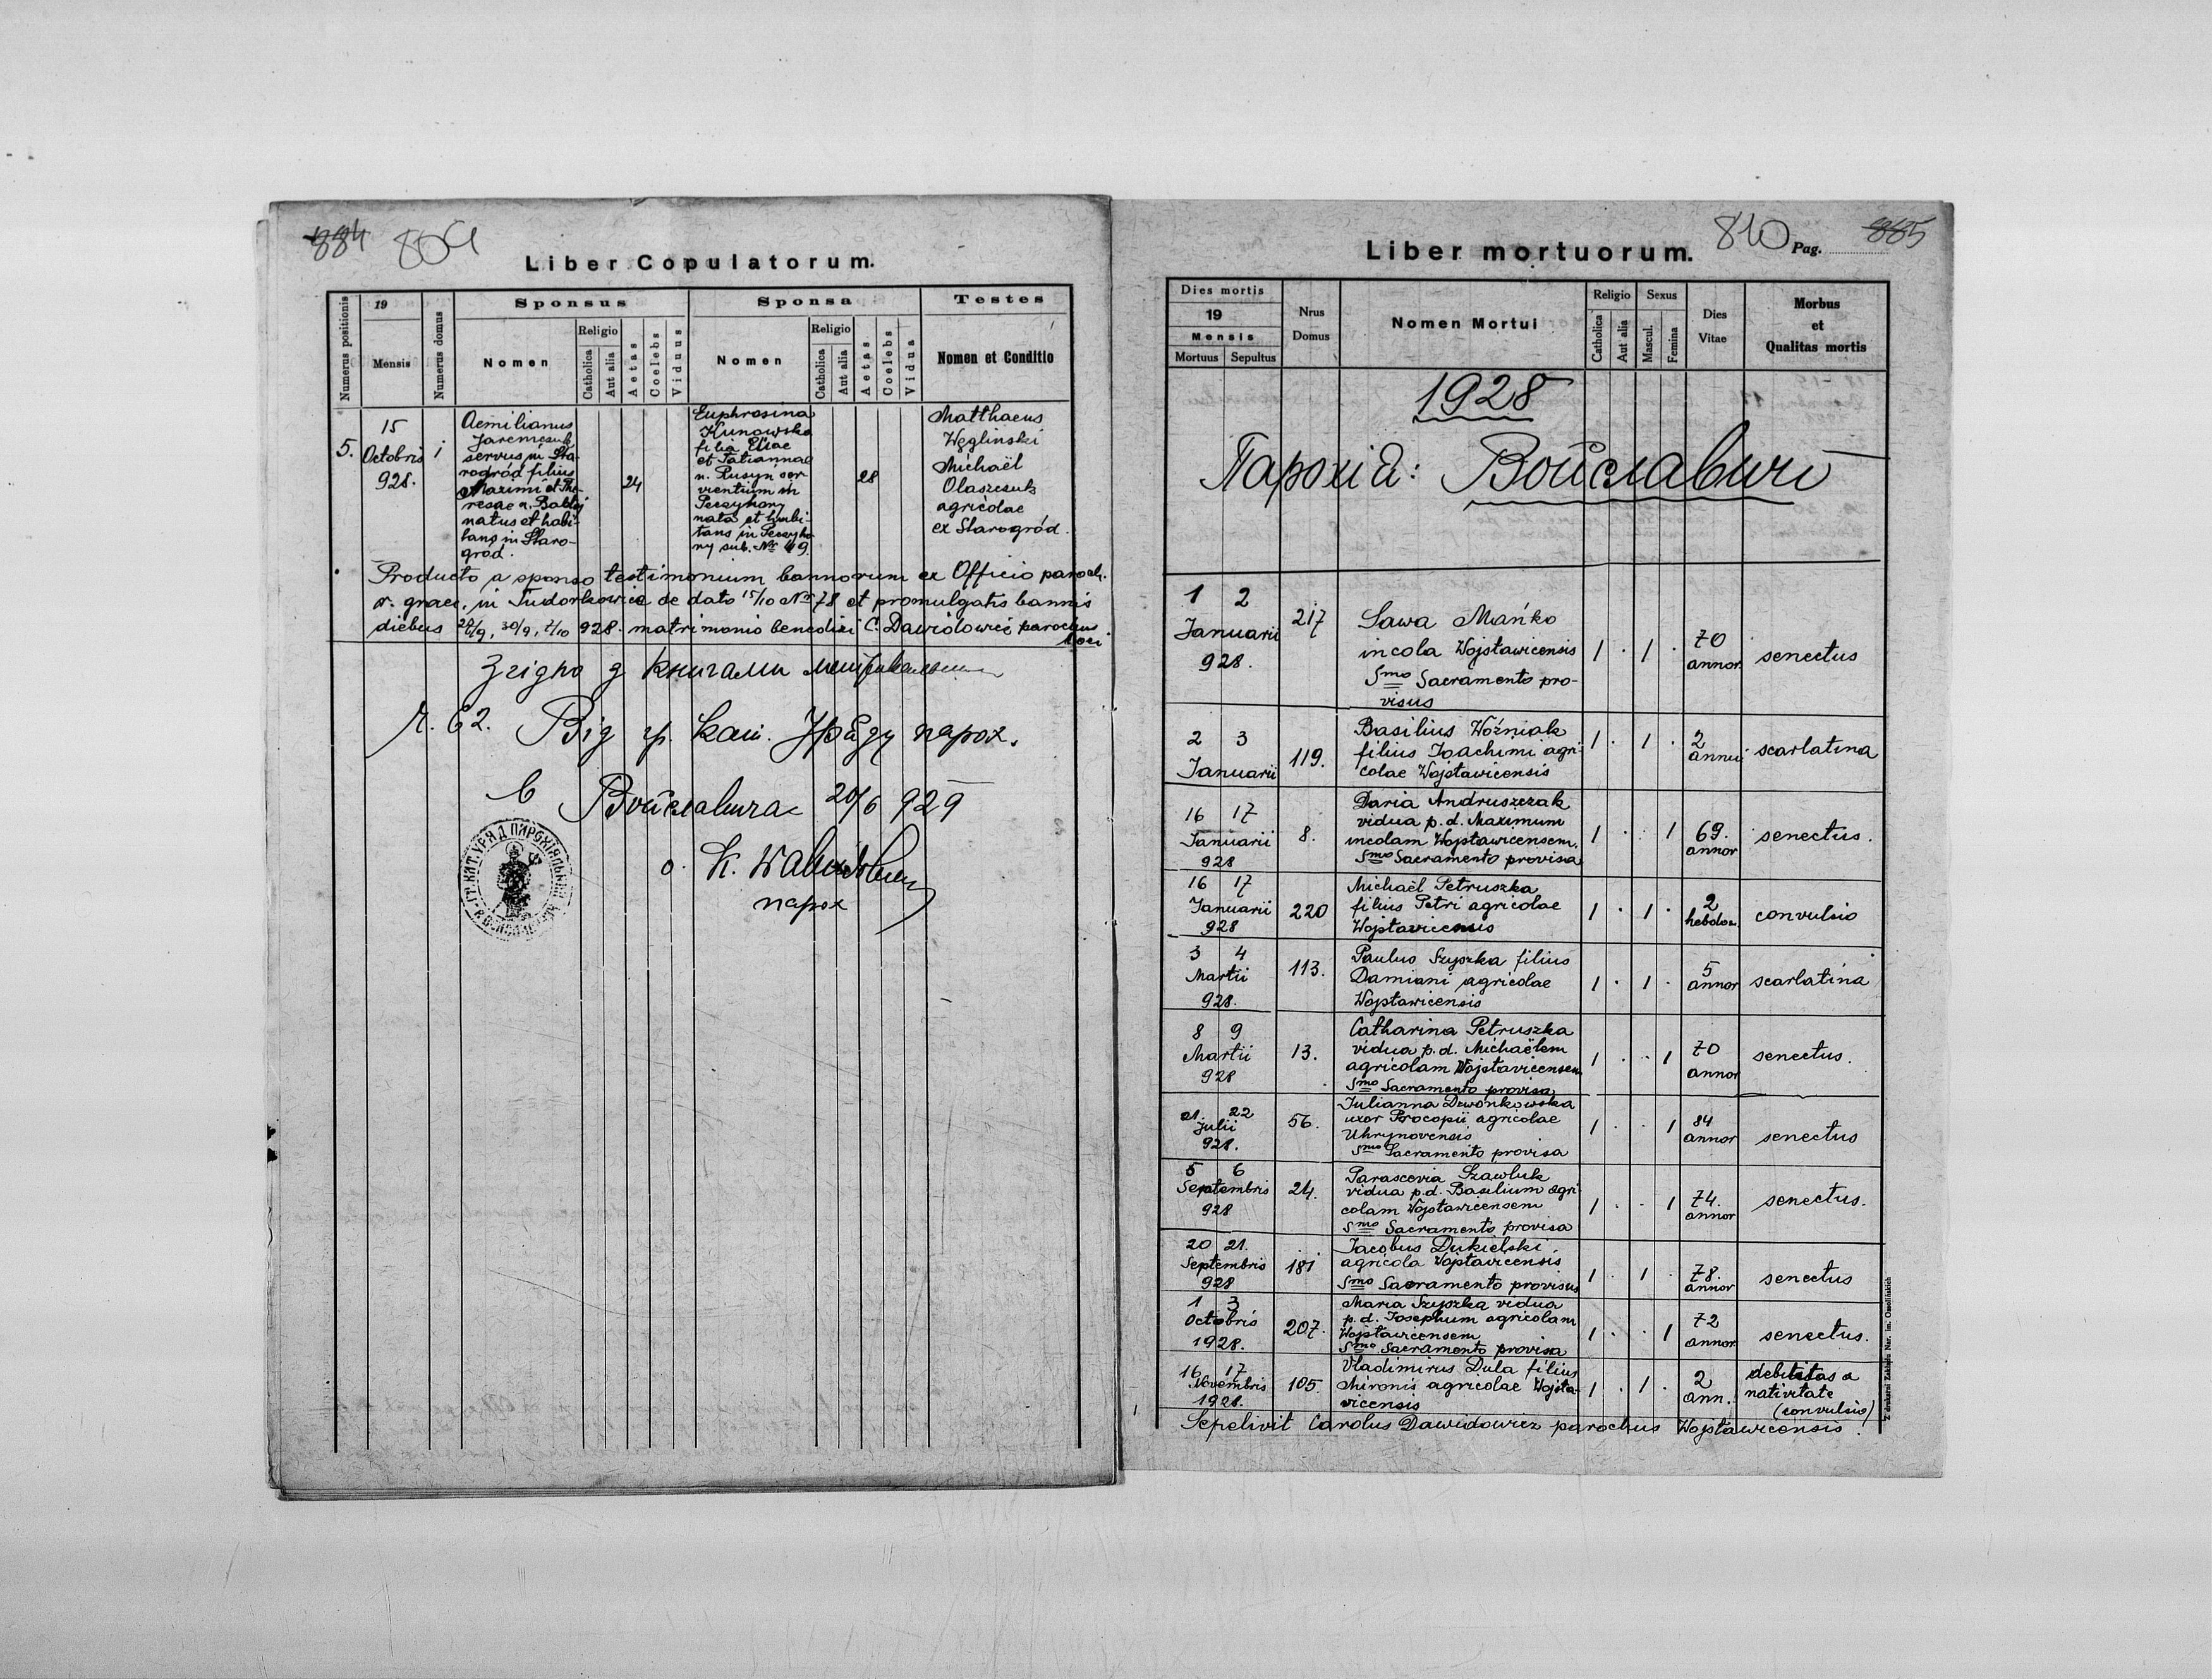 884 804
Liber Copulatorum.
Numerus positionis
19
Mensis
Numerus domus
Sponsus
Sponsa
Testes
Nomen
Religio
Catholica
Aut alia
Aetas
Coelebs
Viduus
Nomen
Religio
Catholica
Aut alia
Aetas
Coelebs
Vidua
Nomen et Conditio
5.
15
Octobris
928.
1
Aemilianus
Jaremczuk
servus in Sta-
rogród filius
Maximi et The-
resae n.
natus et habi-
tans in Staro-
gród.
24
Euphrosina
Kunowska
filia Eliae
et Tatiannae
n. Rusyn ser-
vientium in
nata et habi-
tans in
ny sub. № 49.
28
Matthaeus
Węglinski
Michaël
Olaszczuk
agricolae
ex Starogród.
Producto a sponso testimonium bannorum ex Officio paroch.
r. graec. in Tudorkowice de dato 15/10 № 78 et promulgatis bannis
diebus 30/9, 928. matrimonio benedixi C. Dawidowicz parochus
loci
Згідно з книгами
Ч. 62. Від гр. кат. Уряду парох.
в Войславичах 20/6 929
о. К.
парох
ГР. КАТ. УРЯД ПАРОХІЯЛЬНИЙ
810 Pag. 885
Liber mortuorum.
Dies mortis
19
Mensis
Mortuus Sepultus
Nrus
Domus
Nomen Mortui
Religio
Catholica
Aut alia
Sexus
Mascul.
Femina
Dies
Vitae
Morbus
et
Qualitas mortis
1928
Парохія: Войславичі
1 2
Januarii
928.
217
Sawa Mańko
incola Wojsławicensis
Smo Sacramento pro-
visus
1 . 1 .
70
annor.
senectus
2 3
Januarii
119.
Basilius Woźniak
filius Joachimi agri-
colae Wojsławicensis
1 . 1 .
2
scarlatina
16 17
Januarii
928
8.
Daria Andruszczak
vidua p. d. Maximum
incolam Wojsławicensem.
Smo Sacramento provisa
1 . . 1
69.
annor
senectus.
16 17
Januarii
928
220
Michaël Petruszka
filius Petri agricolae
Wojsławicensis
1 . 1 .
2
hebdom.
convulsio
3 4
Martii
928.
113.
Paulus Szyszka filius
Damiani agricolae
Wojsławicensis
1 . 1 .
5
annor
scarlatina
8 9
Martii
928
13.
Catharina Petruszka
vidua p. d. Michaëlem
agricolam Wojsławicensem
Smo Sacramento provisa
1 . . 1
70
annor
senectus.
21. 22
Julii
928.
56.
Julianna Dzwonkowska
uxor Procopii agricolae
Uhrynovensis
Smo Sacramento provisa
1 . . 1
84
annor
senectus
5 6
Septembris
928
24.
Parascevia Szawluk
vidua p. d. Basilium agri-
colam Wojsławicensem
Smo Sacramento provisa
1 . . 1
74.
annor
senectus.
20 21.
Septembris
928
181
Jacobus Dukielski,
agricola Wojsławicensis
Smo Sacramento provisus
1 . 1 .
78.
annor
senectus
1 3
Octobris
1928.
207.
Maria Szyszka vidua
p. d. Josephum agricolam
Wojsławicensem
Smo Sacramento provisa
1 . . 1
72
annor
senectus.
16 17
Novembris
1928.
105.
Vladimirus Dula filius
Mironis agricolae Wojsła-
vicensis
1 . 1 .
2
ann.
debilitas a
nativitate
(convulsio)
Sepelivit Carolus Dawidowicz parochus Wojsławicensis.
Z drukarni Zakładu Nar. im. Ossolińskich